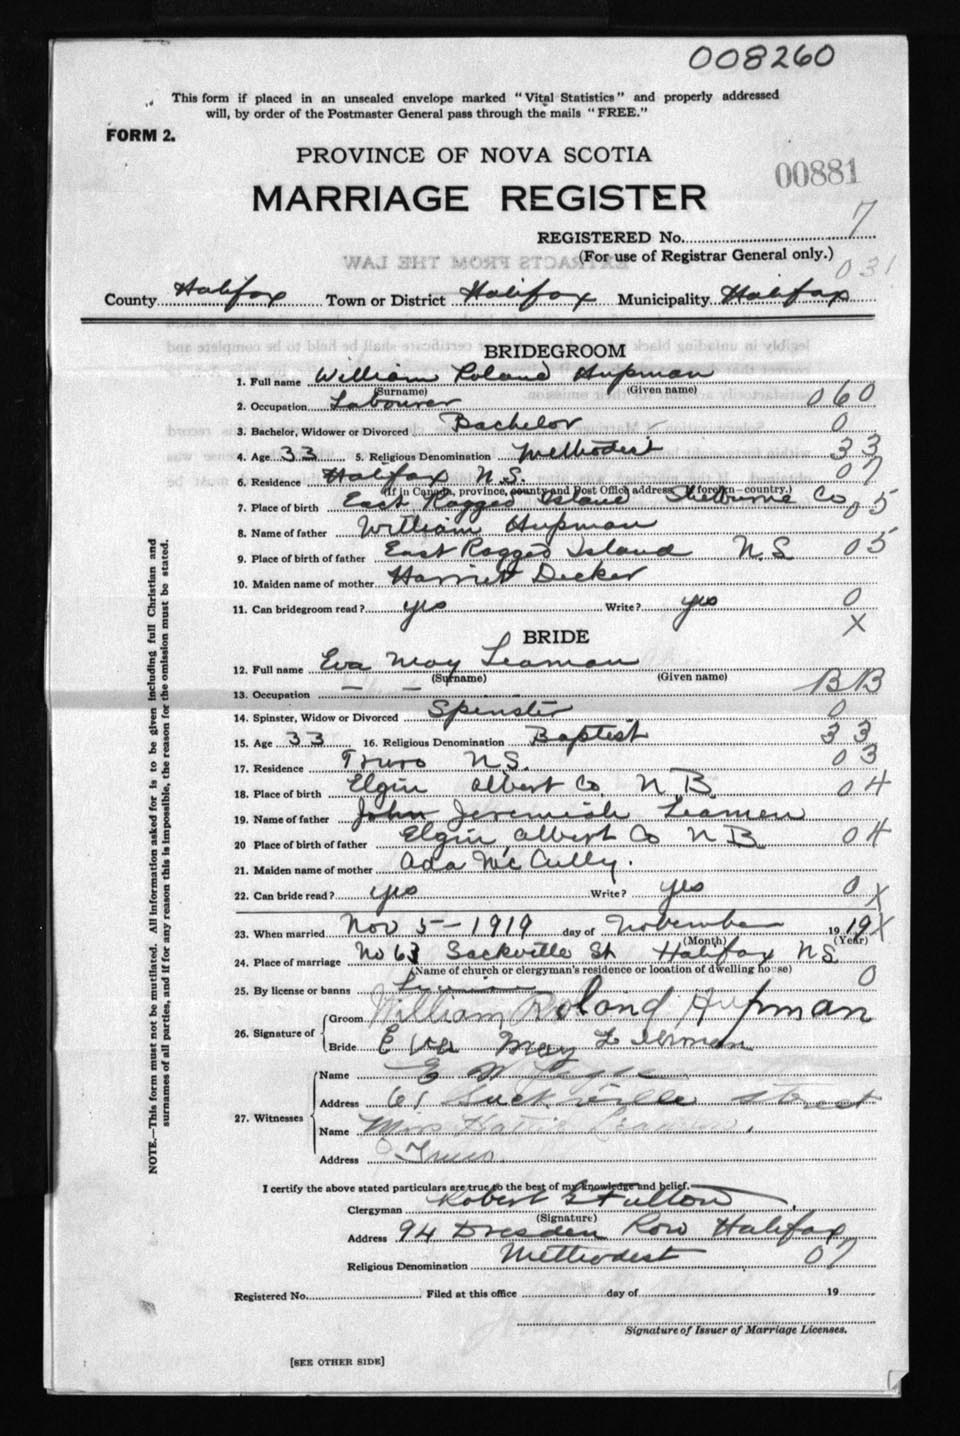 008260
This form if placed in an unsealed envelope marked "Vital Statistics" and properly addressed
will, by order of the Postmaster General pass through the mails "FREE."
FORM 2.
PROVINCE OF NOVA SCOTIA
00881
MARRIAGE REGISTER
REGISTERED No. 7
(For use of Registrar General only.)
031
EXTRACTS FROM THE LAW
County Halifax Town or District Halifax Municipality Halifax
BRIDEGROOM
1. Full name William Roland Hupman
(Surname) (Given name)
2. Occupation Labourer 060
3. Bachelor, Widower or Divorced Bachelor 0
4. Age 33 5. Religious Denomination Methodist 33
6. Residence Halifax N.S. 07
(If in Canada, province, county and Post Office address, if foreign—country.)
7. Place of birth East Ragged Island Shelburne Co 05
8. Name of father William Hupman
9. Place of birth of father East Ragged Island N.S. 05
10. Maiden name of mother Harriet Decker
11. Can bridegroom read? yes Write? yes 0
X
BRIDE
12. Full name Eva May Leaman
(Surname) (Given name)
13. Occupation — — BB
14. Spinster, Widow or Divorced Spinster 0
15. Age 33 16. Religious Denomination Baptist 33
17. Residence Truro N.S. 03
18. Place of birth Elgin Albert Co. N B. 04
19. Name of father John Jeremiah Leamen
20 Place of birth of father Elgin Albert Co N B 04
21. Maiden name of mother Ada McCully.
22. Can bride read? yes Write? yes 0 X
23. When married Nov 5-1919 day of November 19 19 X
(Month) (Year)
24. Place of marriage No 63 Sackville St Halifax N.S.
(Name of church or clergyman's residence or location of dwelling house)
25. By license or banns License 0
26. Signature of Groom William Roland Hupman
Bride Eva May Leaman
27. Witnesses
Name E W
Address 61 Sackville Street
Name Miss Hattie Leaman.
Address Truro
I certify the above stated particulars are true to the best of my knowledge and belief.
Clergyman Robert G Fulton
(Signature)
Address 94 Dresden Row Halifax
Religious Denomination Methodist 07
Registered No. Filed at this office day of 19
Signature of Issuer of Marriage Licenses.
[SEE OTHER SIDE]
NOTE.—This form must not be mutilated. All information asked for is to be given including full Christian and
surnames of all parties, and if for any reason this is impossible, the reason for the omission must be stated.